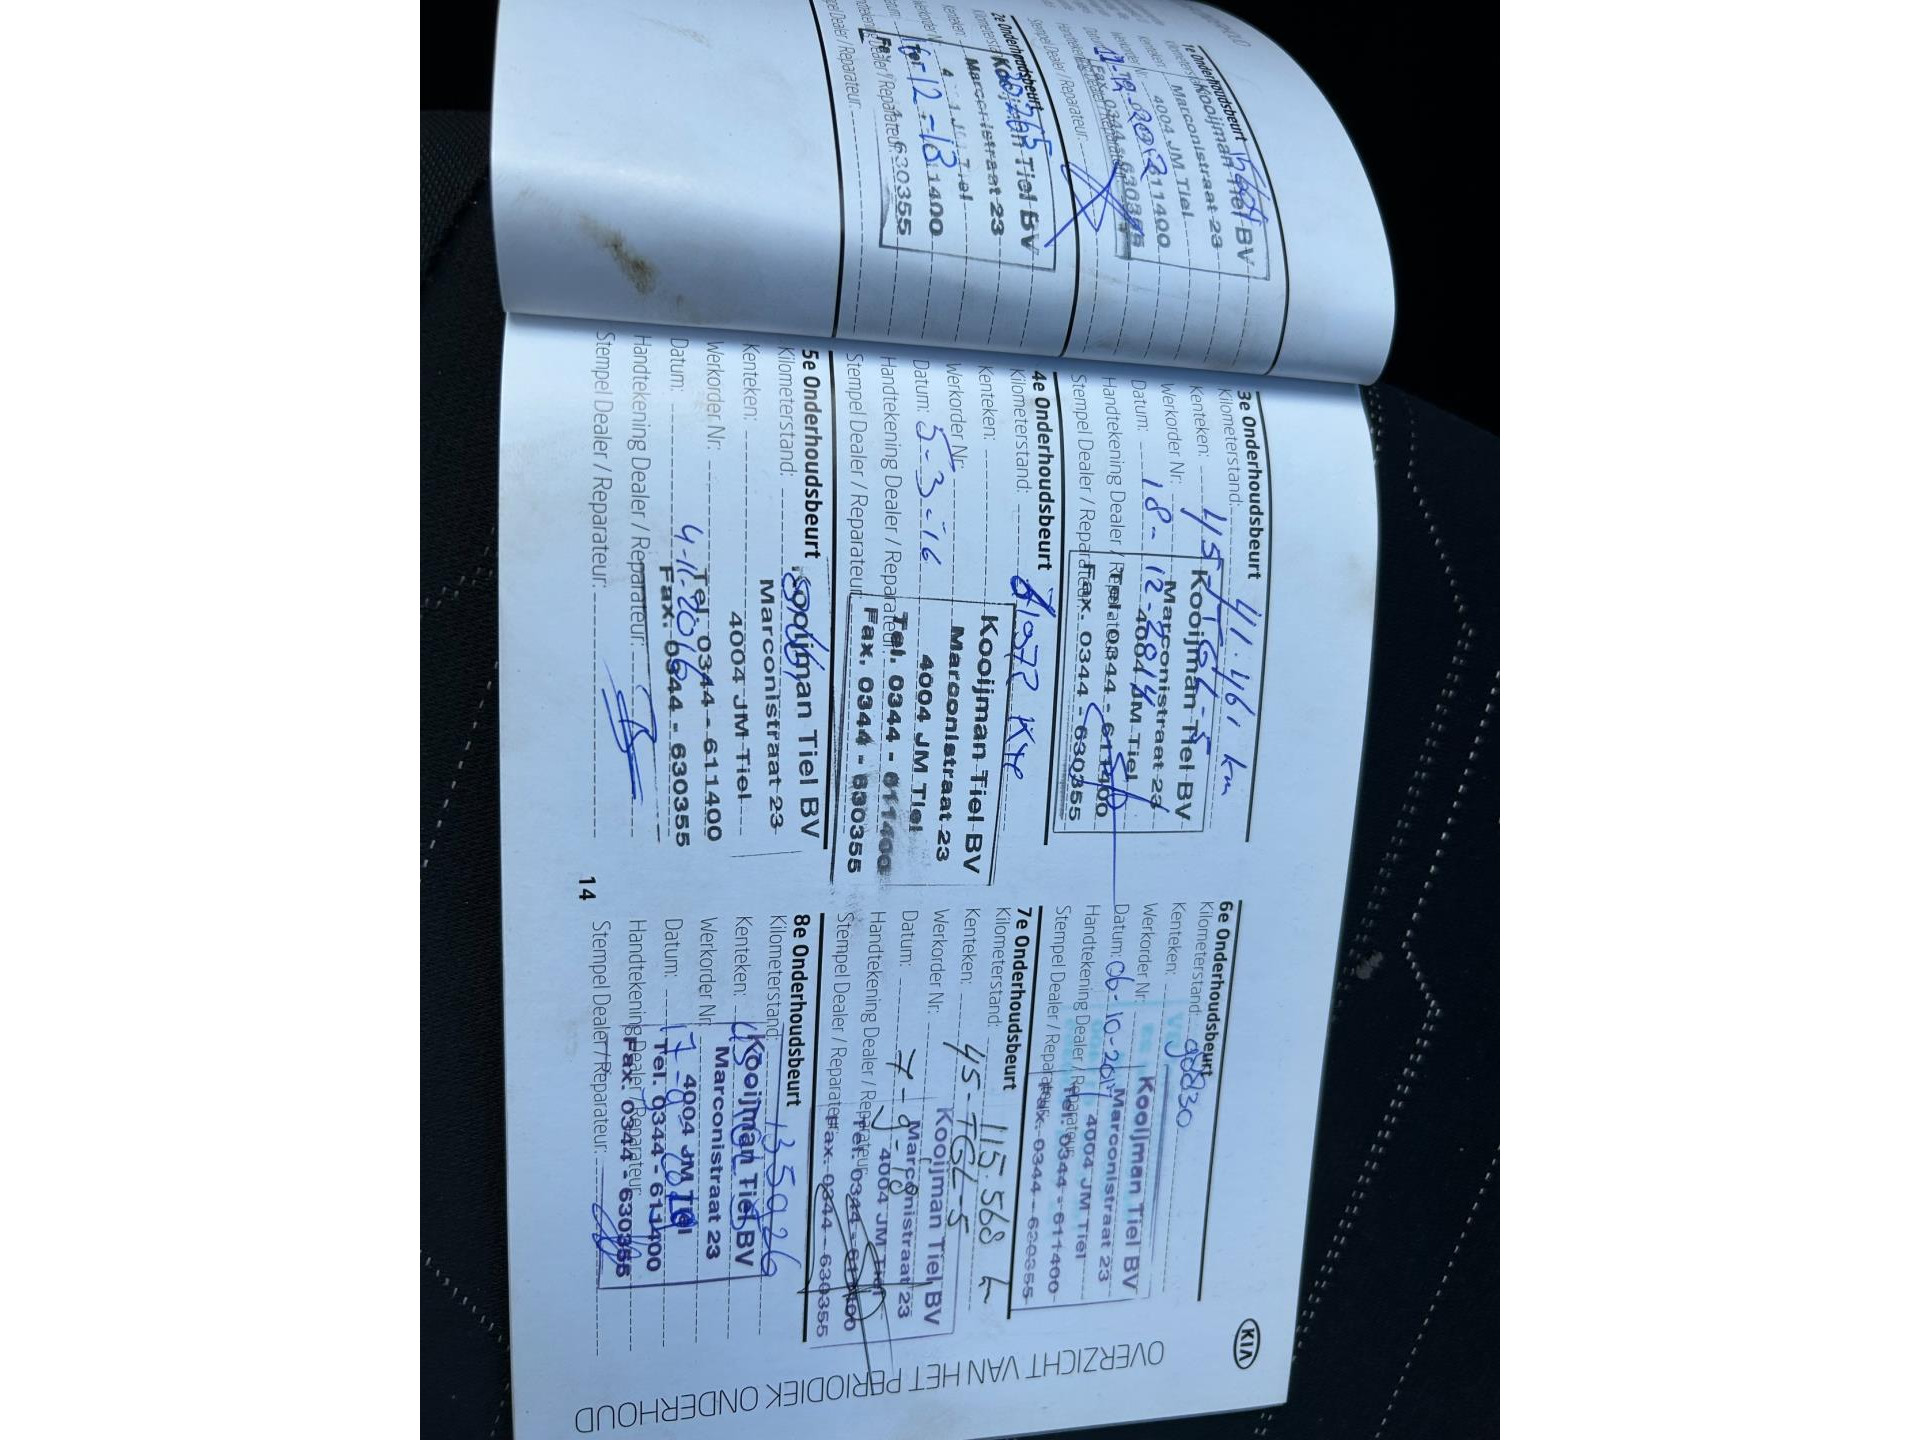 1e Onderhoudsbeurt
Kilometerstand:
Kenteken:
Werkorder Nr:
Datum:
Stempel Dealer / Reparateur:
Kooijman Tiel BV
Marconistraat 23
4004 JM Tiel
611400
Fax. 0344 - 630355
2e Onderhoudsbeurt
Kilometerstand:
Kenteken:
Werkorder Nr:
Datum: 6-12-13
Handtekening Dealer / Reparateur:
Stempel Dealer / Reparateur:
Kooijman Tiel BV
Marconistraat 23
Tiel
Tel. 611400
Fax. 630355
3e Onderhoudsbeurt
Kilometerstand: 41.461 km
Kenteken: 45-TGL-5
Werkorder Nr:
Datum: 18-12-2014
Handtekening Dealer / Reparateur:
Stempel Dealer / Reparateur:
Kooijman Tiel BV
Marconistraat 23
4004 JM Tiel
Tel. 0344 - 611400
Fax. 0344 - 630355
4e Onderhoudsbeurt
Kilometerstand:
Kenteken:
Werkorder Nr:
Datum: 5-3-16
Handtekening Dealer / Reparateur:
Stempel Dealer / Reparateur:
Kooijman Tiel BV
Marconistraat 23
4004 JM Tiel
Tel. 0344 - 611400
Fax. 0344 - 630355
5e Onderhoudsbeurt
Kilometerstand:
Kenteken:
Werkorder Nr:
Datum: 4-11-2016
Handtekening Dealer / Reparateur:
Stempel Dealer / Reparateur:
Kooijman Tiel BV
Marconistraat 23
4004 JM Tiel
Tel. 0344 - 611400
Fax. 0344 - 630355
14
6e Onderhoudsbeurt
Kilometerstand:
Kenteken:
Werkorder Nr:
Datum: 06-10-2017
Handtekening Dealer / Reparateur:
Stempel Dealer / Reparateur:
Kooijman Tiel BV
Marconistraat 23
4004 JM Tiel
Tel. 0344 - 611400
Fax. 0344 - 630355
7e Onderhoudsbeurt
Kilometerstand: 115.568
Kenteken: 45-TGL-5
Werkorder Nr:
Datum: 7-9-18
Handtekening Dealer / Reparateur:
Stempel Dealer / Reparateur:
Kooijman Tiel BV
Marconistraat 23
4004 JM Tiel
Tel. 0344 - 611400
Fax. 0344 - 630355
8e Onderhoudsbeurt
Kilometerstand: 135926
Kenteken:
Werkorder Nr:
Datum:
Handtekening Dealer / Reparateur:
Stempel Dealer / Reparateur:
Kooijman Tiel BV
Marconistraat 23
4004 JM Tiel
Tel. 0344 - 611400
Fax. 0344 - 630355
KIA
OVERZICHT VAN HET PERIODIEK ONDERHOUD